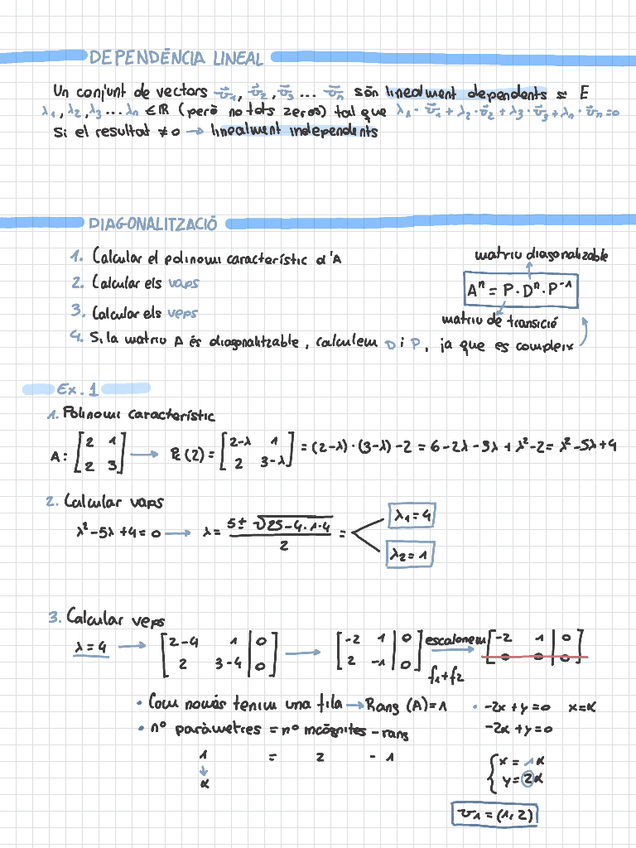 DEPENDÈNCIA LINEAL
Un conjunt de vectors v⃗₁, v⃗₂, v⃗₃ ... v⃗ₙ són linealment dependents si E
λ₁, λ₂, λ₃ ... λₙ ∈ ℝ (però no tots zeros) tal que λ₁·v⃗₁+λ₂·v⃗₂+λ₃·v⃗₃+λₙ·v⃗ₙ=0
Si el resultat ≠0 → linealment independents
DIAGONALITZACIÓ
1. Calcular el polinomi característic d'A
2. Calcular els vaps
3. Calcular els veps
4. Si la matriu A és diagonalitzable, calculem D i P, ja que es compleix
matriu diagonalitzable
Aⁿ = P·Dⁿ·P⁻¹
matriu de transició
Ex. 1
1. Polinomi característic
A: [2 1; 2 3] → (2) = [2-λ 1; 2 3-λ] = (2-λ)·(3-λ)-2 = 6-2λ-3λ+λ²-2 = λ²-5λ+4
2. Calcular vaps
λ²-5λ+4=0 → λ= (5±√25-4·1·4)/2 =
λ₁=4
λ₂=1
3. Calcular veps
λ=4 → [2-4 1 | 0; 2 3-4 | 0] → [-2 1 | 0; 2 -1 | 0] escalonem [-2 1 | 0; 0 0 | 0]
f₁+f₂
• Com només tenim una fila → Rang (A)=1
• nº paràmetres = nº incògnites - rang
1 = 2 - 1
↓
α
• -2x+y=0 x=α
-2α+y=0
{x = 1α
y = 2α
v₁=(1,2)